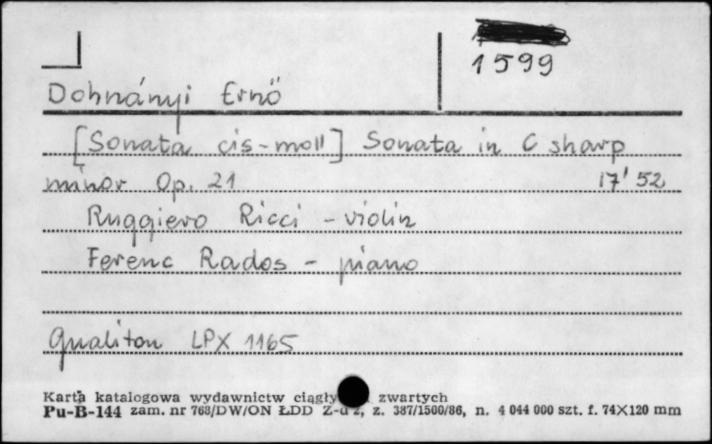 1599
Dohnányi Ernö
[Sonata cis-moll] Sonata in C sharp
minor Op. 21 17'52
Ruggiero Ricci - violin
Ferenc Rados - piano
Qualiton LPX 1165
Karta katalogowa wydawnictw ciągły zwartych
Pu-B-144 zam. nr 768/DW/ON ŁDD Z-d 2, z. 387/1500/86, n. 4 044 000 szt. f. 74×120 mm